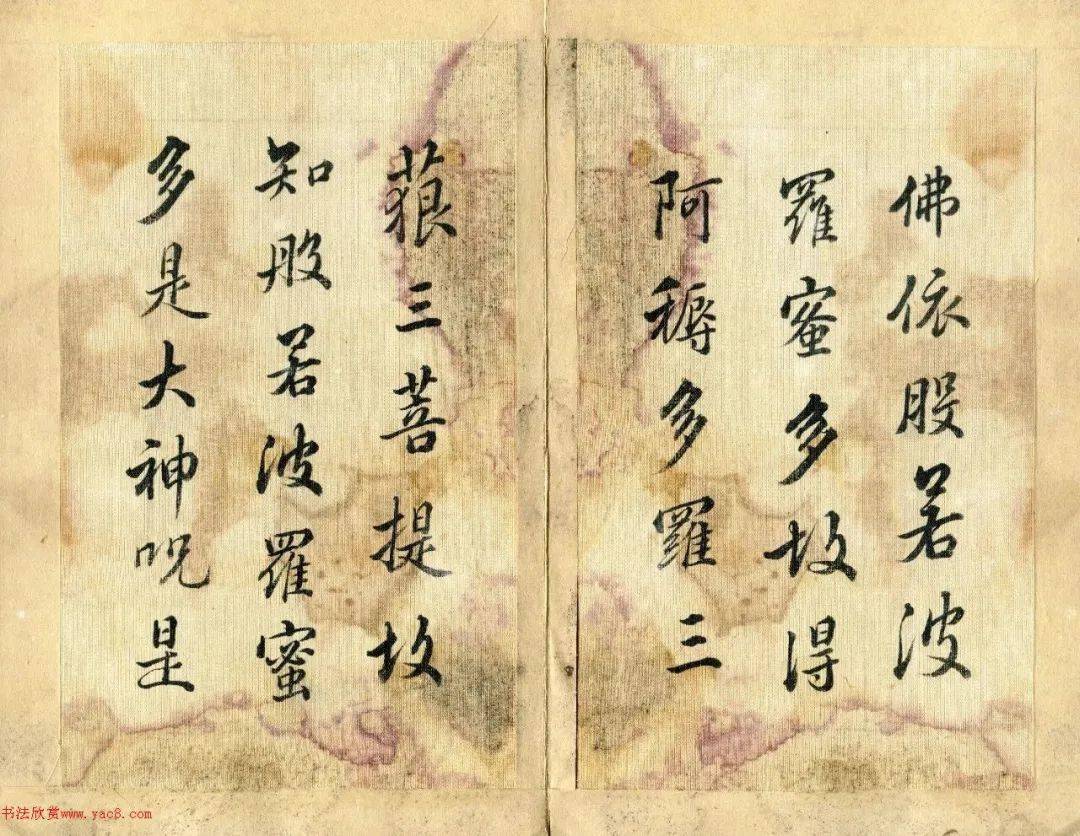 佛依般若波
羅蜜多故得
阿耨多羅三
藐三菩提故
知般若波羅蜜
多是大神呪是
书法欣赏www.yac8.com